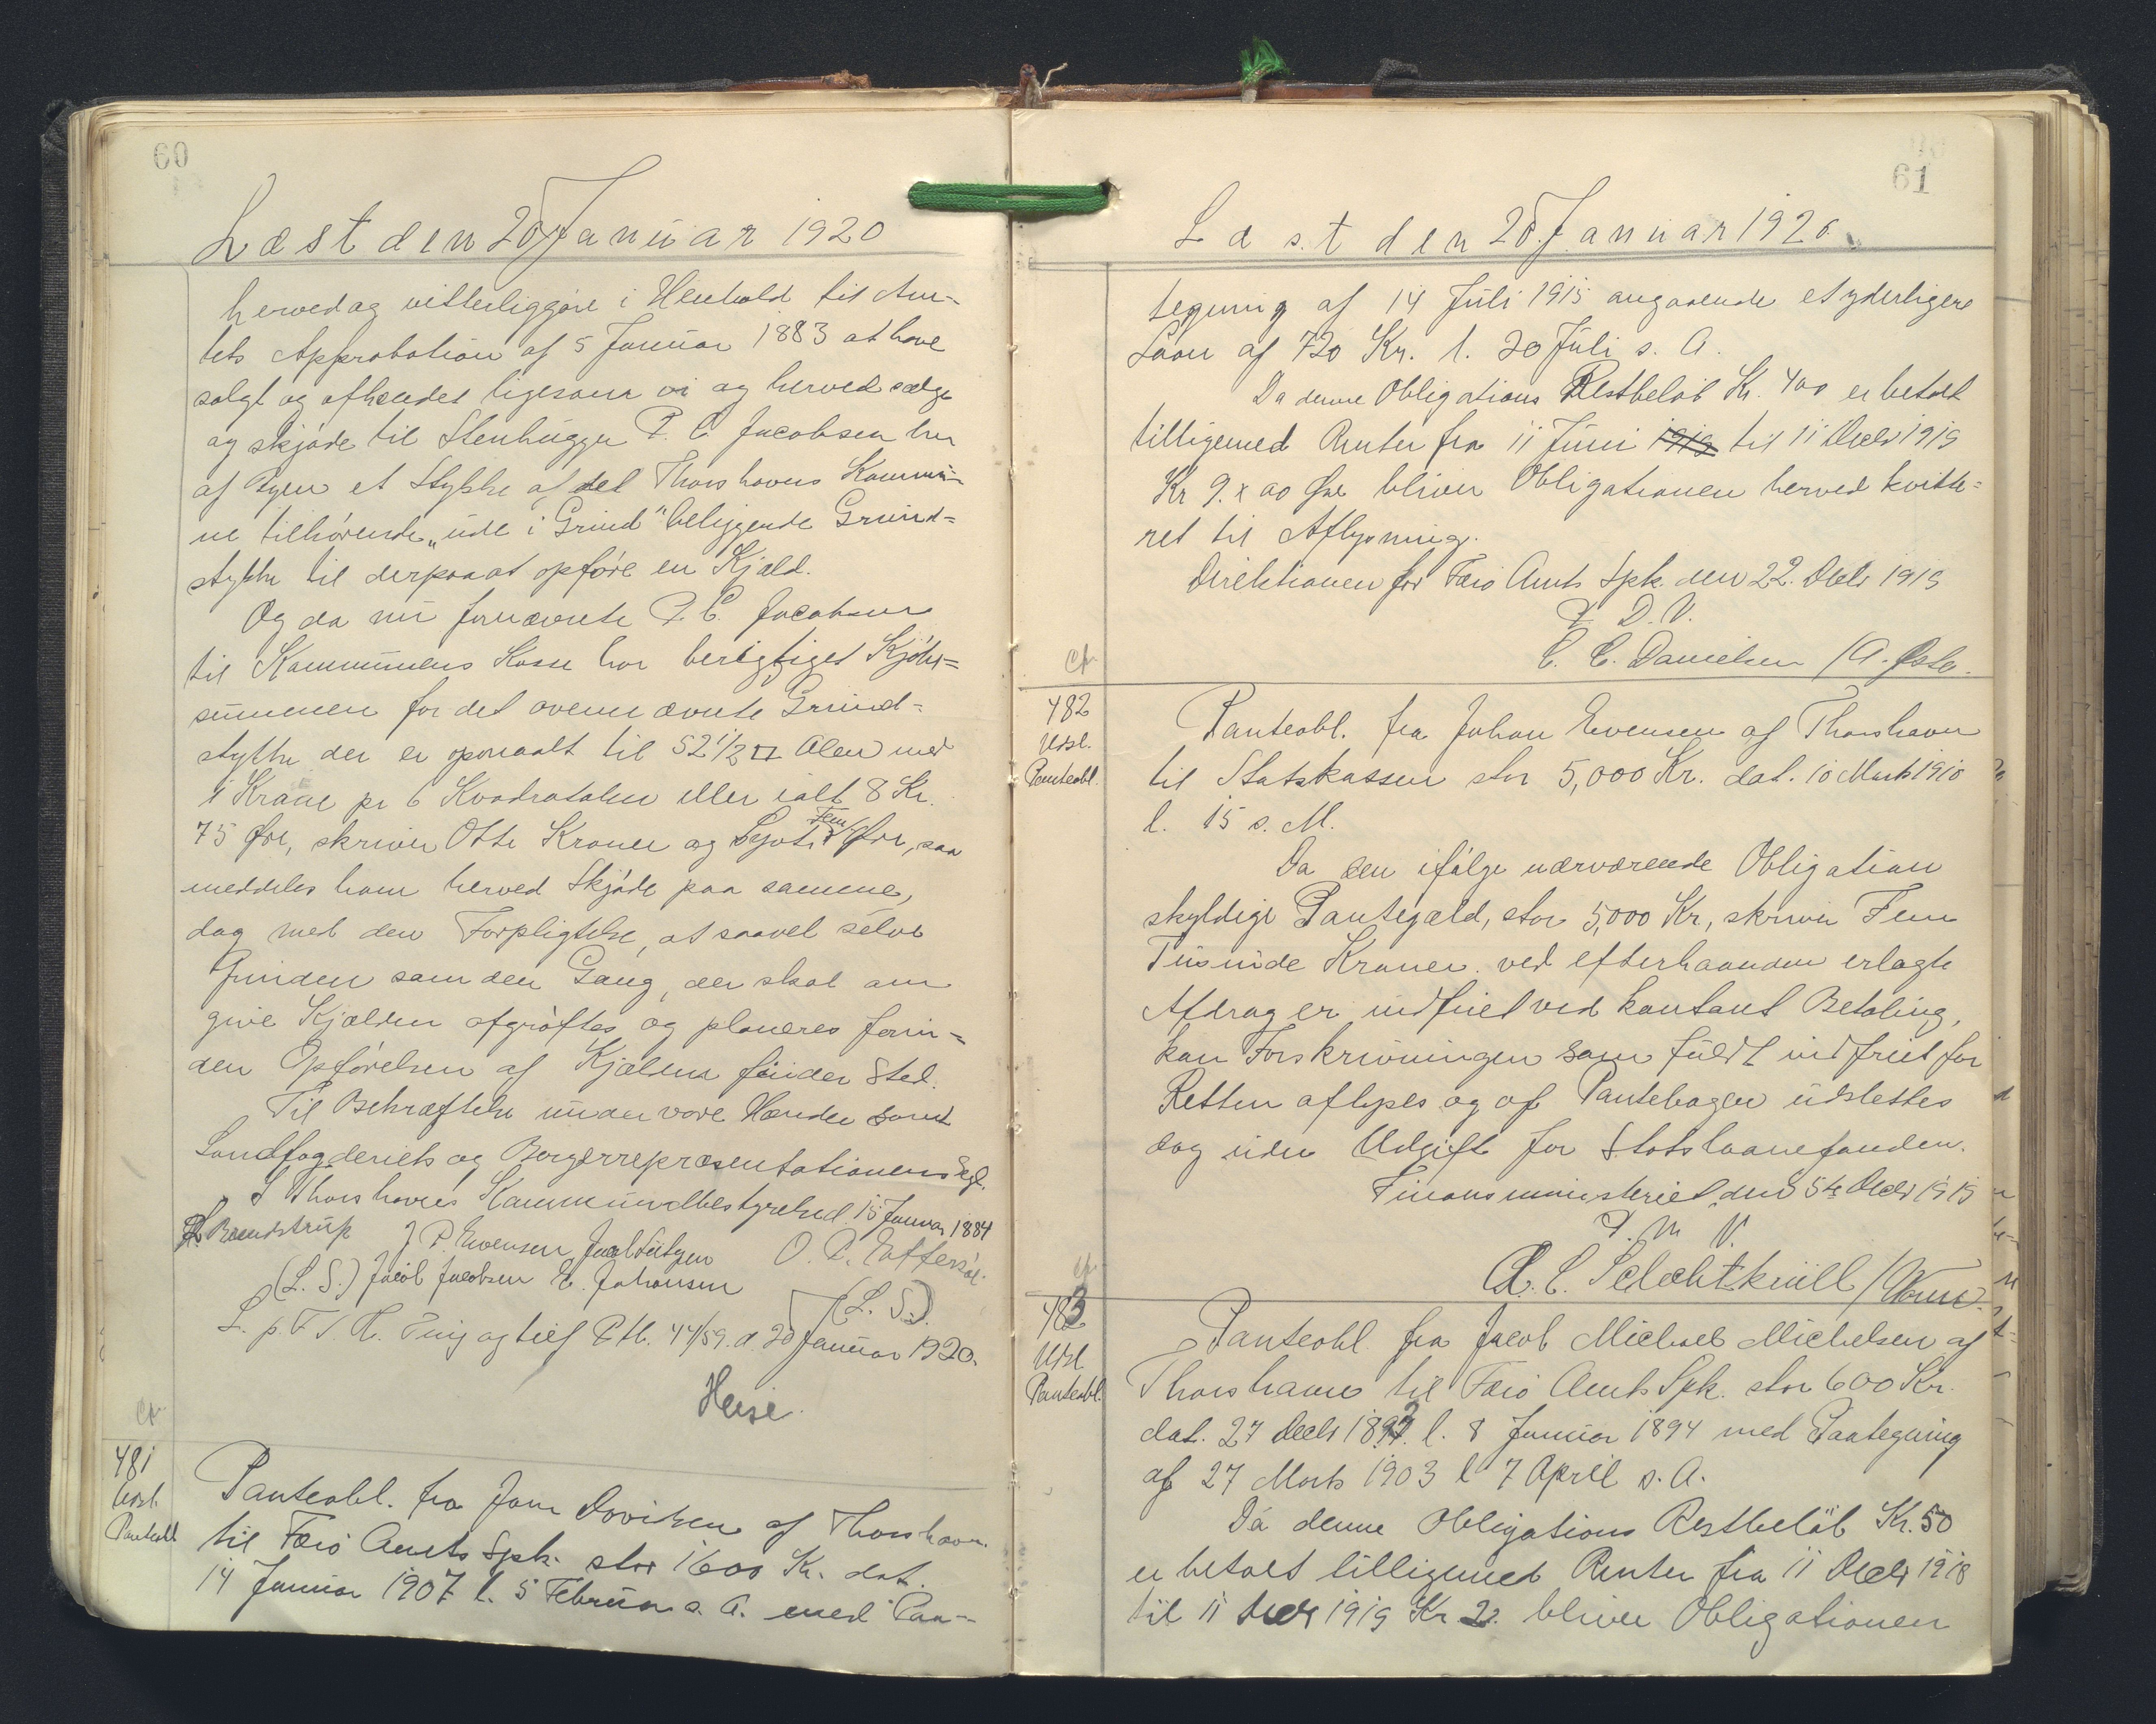 60
Læst den 20 Januar 1920
herved og vitterliggøre i Henhold til Am-
tets Approbation af 5 Januar 1883 at have
solgt og afhændet ligesom vi og herved sælge
og skjøde til Stenhugger P. C. Jacobsen her
af Byen et Stykke af det Thorshavns Kommu-
ne tilhørende „ude i Grind" beliggende Grund-
stykke til derpaa at opføre en Kjæld.
Og da nu fornævnte P. C. Jacobsen
til Kommunens Kasse har berigtiget Kjøbe-
summen for det ovennævnte Grund-
stykke der er opmaalt til 52 1/2 □ Alen med
1 Krone pr 6 Kvadratalen eller ialt 8 Kr.
75 Øre, skriver Otte Kroner og Syvti Fem Øre, saa
meddeles ham herved Skjøde paa samme,
dog med den Forpligtelse, at saavel selve
Grunden som den Gang, der skal om
give Kjælden afgrøftes og planeres forin-
den Opførelsen af Kjælden finder Sted.
Til Bekræftelse under vore Hænder samt
Landfogderiets og Borgerrepræsentationens Segl.
I Thorshavns Kommunalbestyrelse d. 15 Januar 1884
Brendstrup J. P. Evensen Jacob Lützen O. P. Effersøe
(L. S.) Jacob Jacobsen E. Johansen
(L. S.)
L. p. F. T. R. Ting og tilf Ptb. 44/59. d. 20 Januar 1920.
Heise.
481
Udsl.
Panteobl
Panteobl. fra Joen Davidsen af Thorshavn
til Færø Amts Spk. stor 1600 Kr. dat.
14 Januar 1907 l. 5 Februar s. A. med Paa-
61
Læst den 20. Januar 1920.
tegning af 14 Juli 1915 angaaende et yderligere
Laan af 720 Kr. l. 20 Juli s. A.
Da denne Obligations Restbeløb Kr. 400 er betalt
tilligemed Renter fra 11 Juni 1919 til 11 Decbr 1919
Kr 9. x 00 Øre bliver Obligationen herved kvitte=
ret til Aflysning.
Direktionen for Færø Amts Spk. den 22. Decbr 1919
P. D. V.
C. C. Danielsen /A. Petr.
482
Udsl.
Panteobl.
Panteobl. fra Johan Evensen af Thorshavn
til Statskassen stor 5,000 Kr. dat. 10 Marts 1910
l. 15 s. M.
Da den ifølge nærværende Obligation
skyldige Pantegæld, stor 5,000 Kr., skriver Fem
Tusinde Kroner. ved efterhaanden erlagte
Afdrag er indfriet ved kontant Betaling,
kan Forskrivningen som fuldt indfriet for
Retten aflyses og af Pantebogen udslettes
dog uden Udgift for Statslaanefonden.
Finansministeriet, den 5te Decbr 1919
P. M. V.
483
Udsl
Panteobl.
Panteobl. fra Jacob Michael Michelsen af
Thorshavn til Færø Amts Spk. stor 600 Kr.
dat. 27 Decbr 1893. l. 8 Januar 1894 med Paategning
af 27 Marts 1903 l 7 April s. A.
Da denne Obligations Restbeløb Kr. 50
er betalt tilligemed Renter fra 11 Decbr 1918
til 11 Decbr 1919 Kr 2. bliver Obligationen